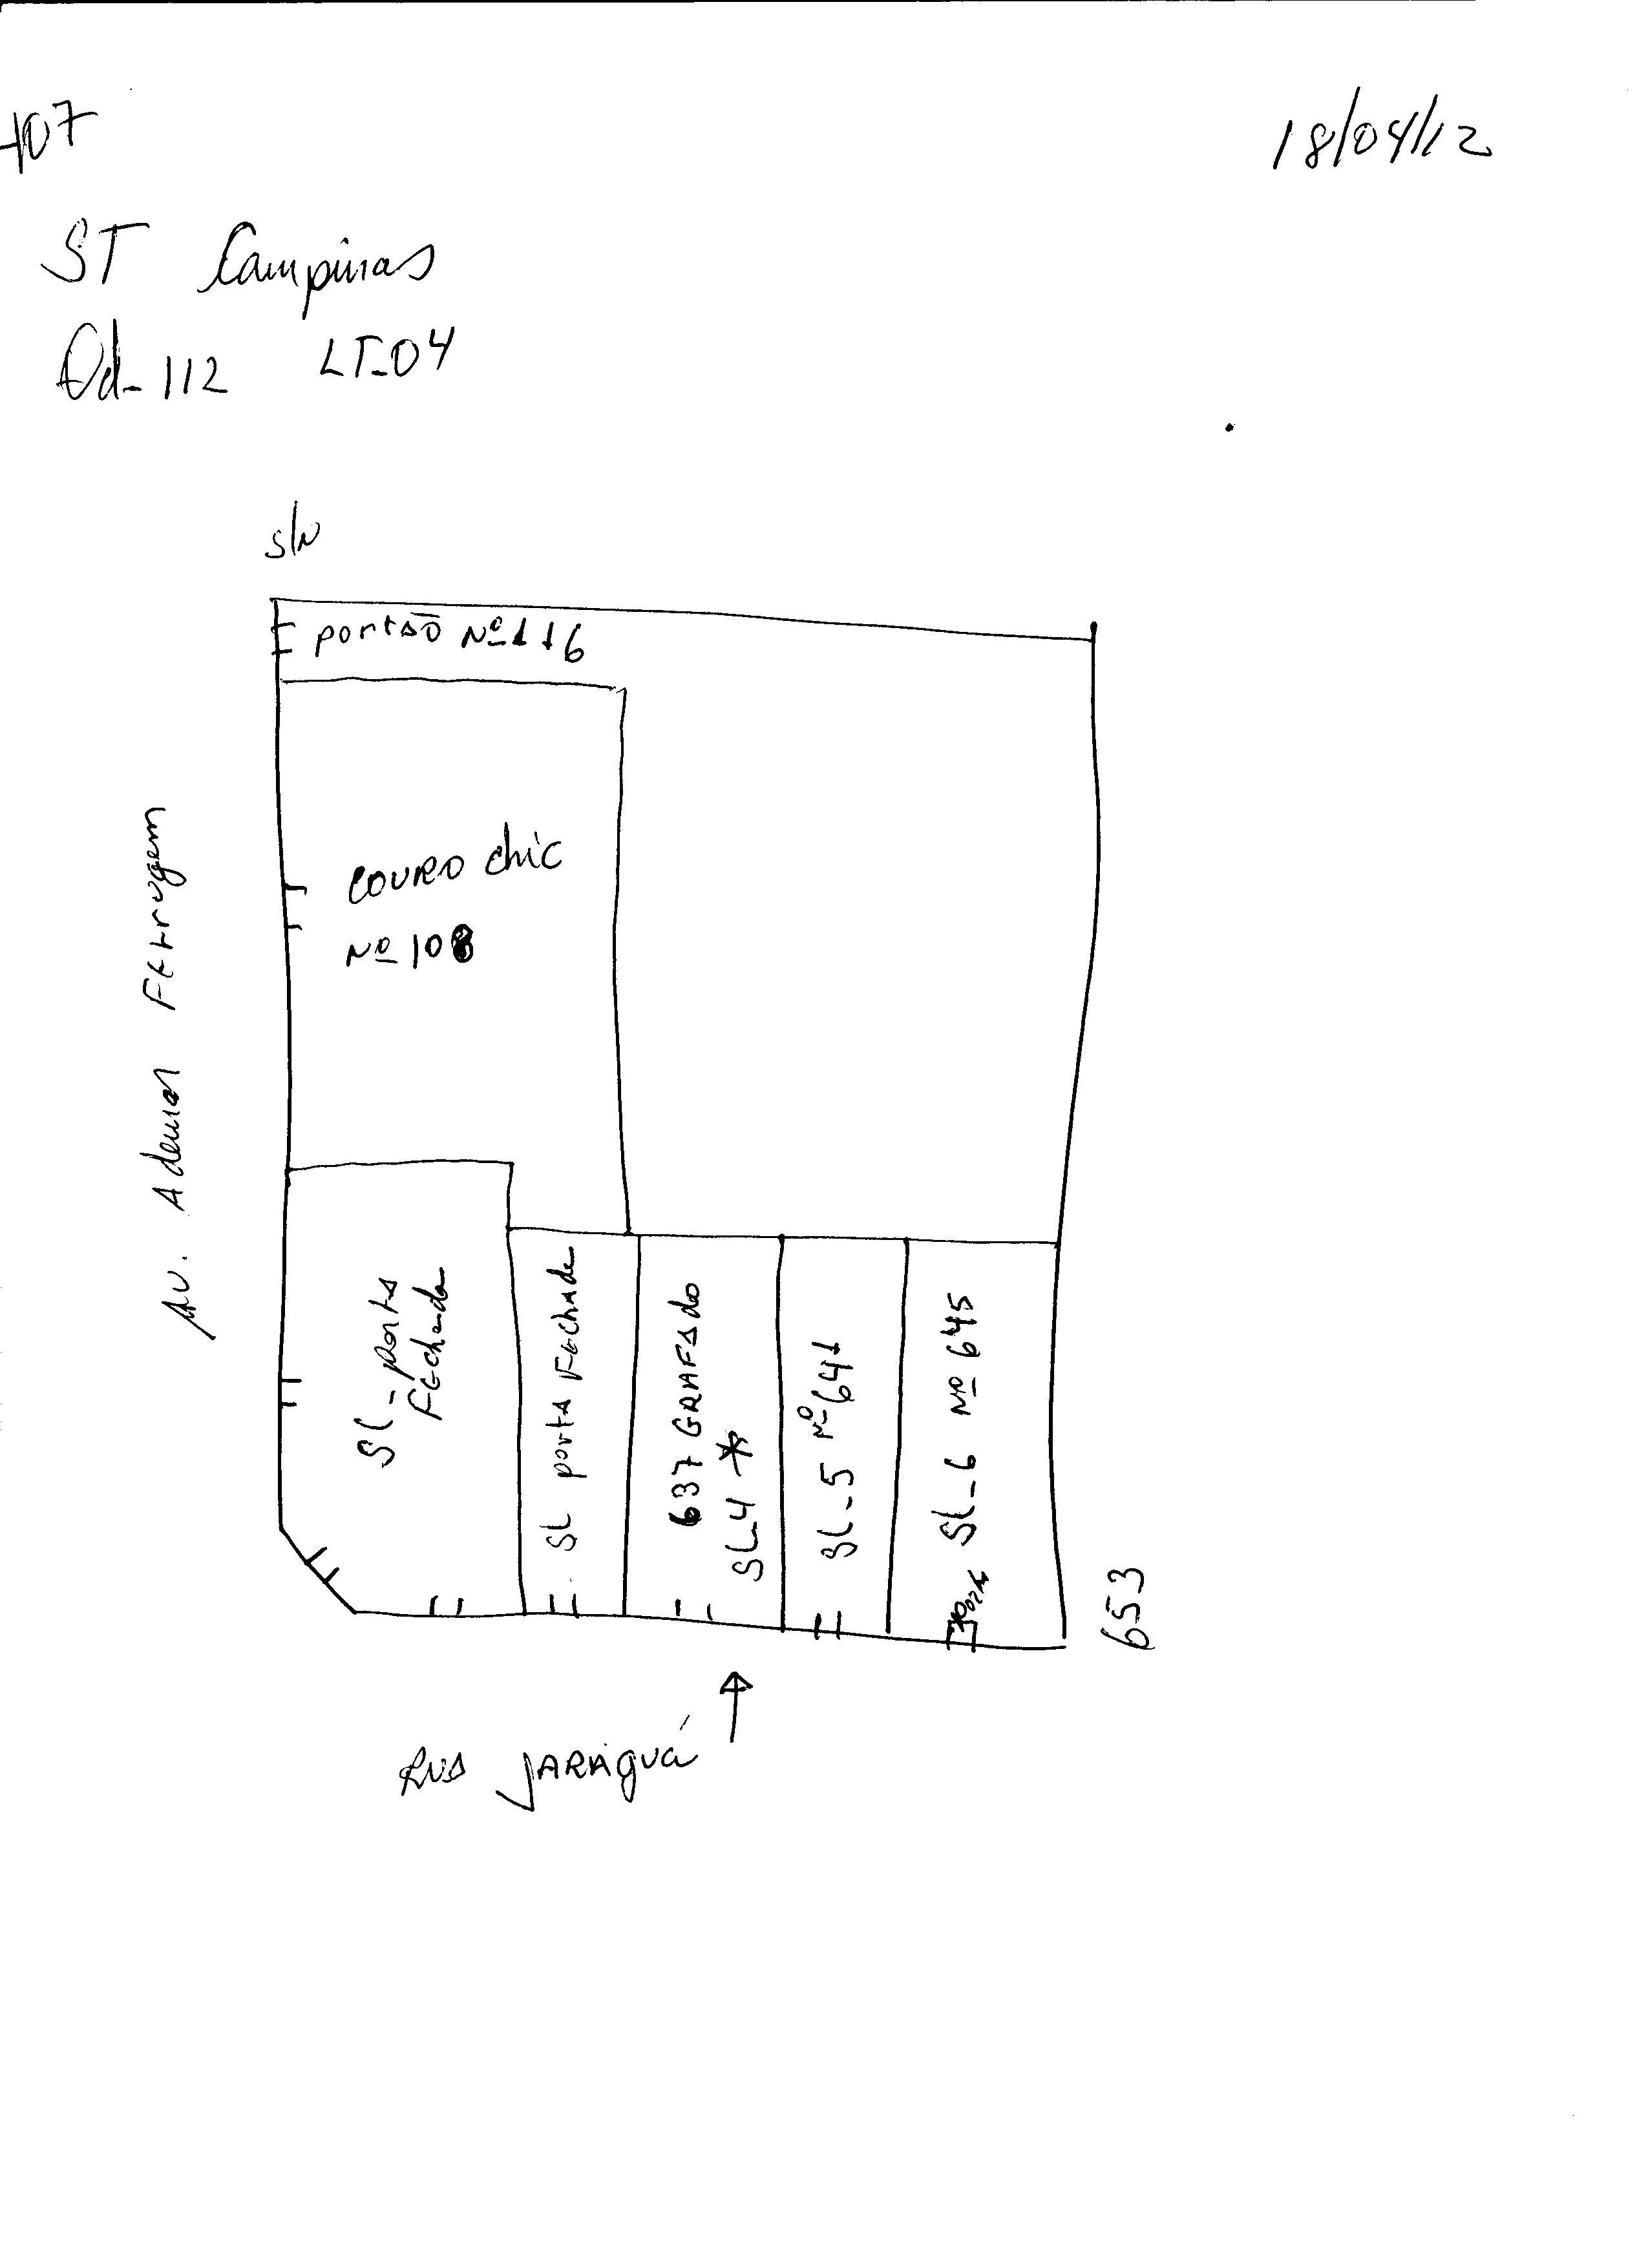 107
18/04/12
ST Campinas
Qd-112 LT-04
S/N
portão Nº 116
COURO chic
Nº 108
Av. Ademar Ferrugem
SL-porta
Fechada
SL porta Fechada
637 GRAFADO
SL-4 *
SL-5 Nº 641
SL-6 Nº 645
653
RUA JARAGUÁ